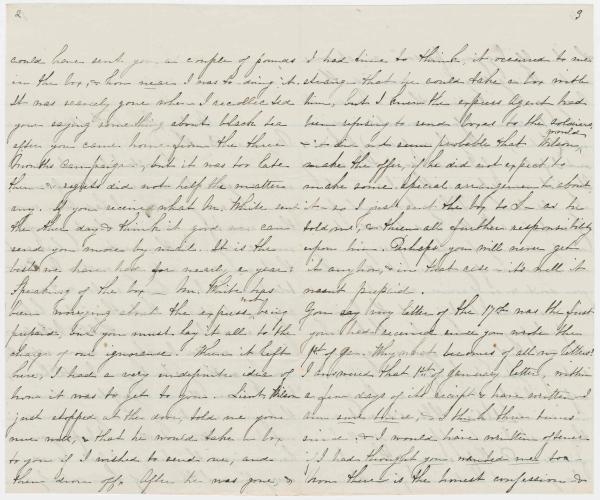 2
could have sent you a couple of pounds
in the box, & how near I was to doing it.
It was scarcely gone when I recollected
your saying something about black tea
after you came home from the three
months campaign, but it was too late
then & regrets did not help the matter
any. If you received what Mr. White sent
the other day & think it good we can
send you more by mail. It is the
best we have had for nearly a year.
Speaking of the box — Mr. White has
been worrying about the express not being
prepaid, but you must lay it all to the
charge of our ignorance. When it left
here, I had a very indefinite idea of
how it was to get to you. Lieut. Wilson
just stopped at the door, told me you
were well, & that he would take a box
to you if I wished to send one, and
then drove off. After he was gone, &
3
I had time to think, it occurred to me
strange that he could take a box with
him, but I knew the express Agent had
been refusing to send boxes to the soldiers,
& it did not seem probable that Wilson, would
make the offer, if he did not expect to
make some special arrangement about
it so I just sent the box to I— as he
told me, & threw all further responsibility
upon him. Perhaps you will never get
it anyhow, & in that case its well it
wasnt prepaid.
You say my letter of the 17th was the first
you had received since you wrote the
1st of Jan. Why what becomes of all my letters?
I answered that 1st of January letter, within
a few days of its receipt & have written I
am sure twice, & I think three times
since, & I would have written oftener
if I had thought you wanted me too
now there is the honest confession &